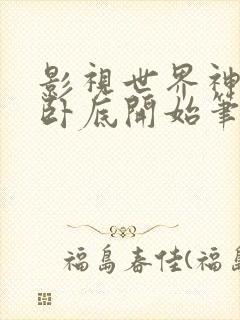 影視世界神
卧底開始筆
福島春佳(福島